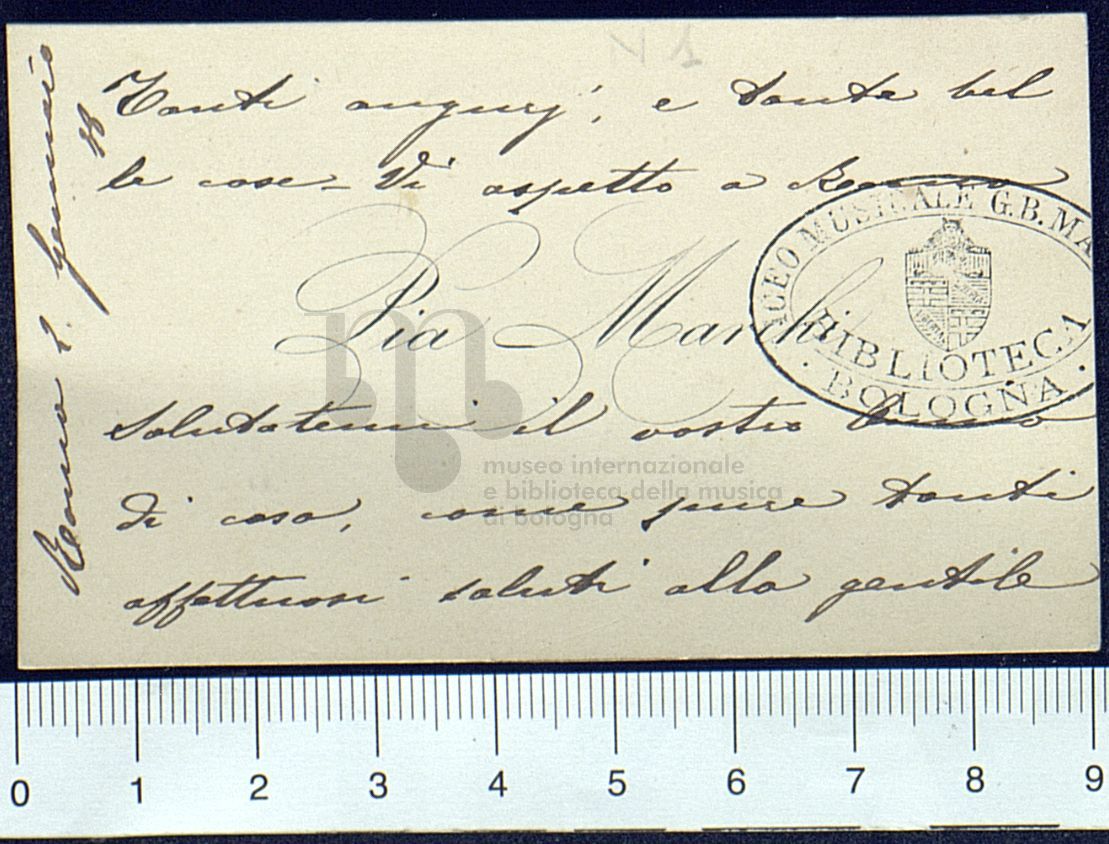 Tanti augurj, e tante bel
le cose - Vi aspetto a Roma
Pia Marchi
salutatemi il vostro buono
di casa, come pure tanti
affettuosi saluti alla gentile
Roma 1 Gennaio
LICEO MUSICALE G.B. MA
BIBLIOTECA
BOLOGNA
museo internazionale
e biblioteca della musica
di bologna
0 1 2 3 4 5 6 7 8 9